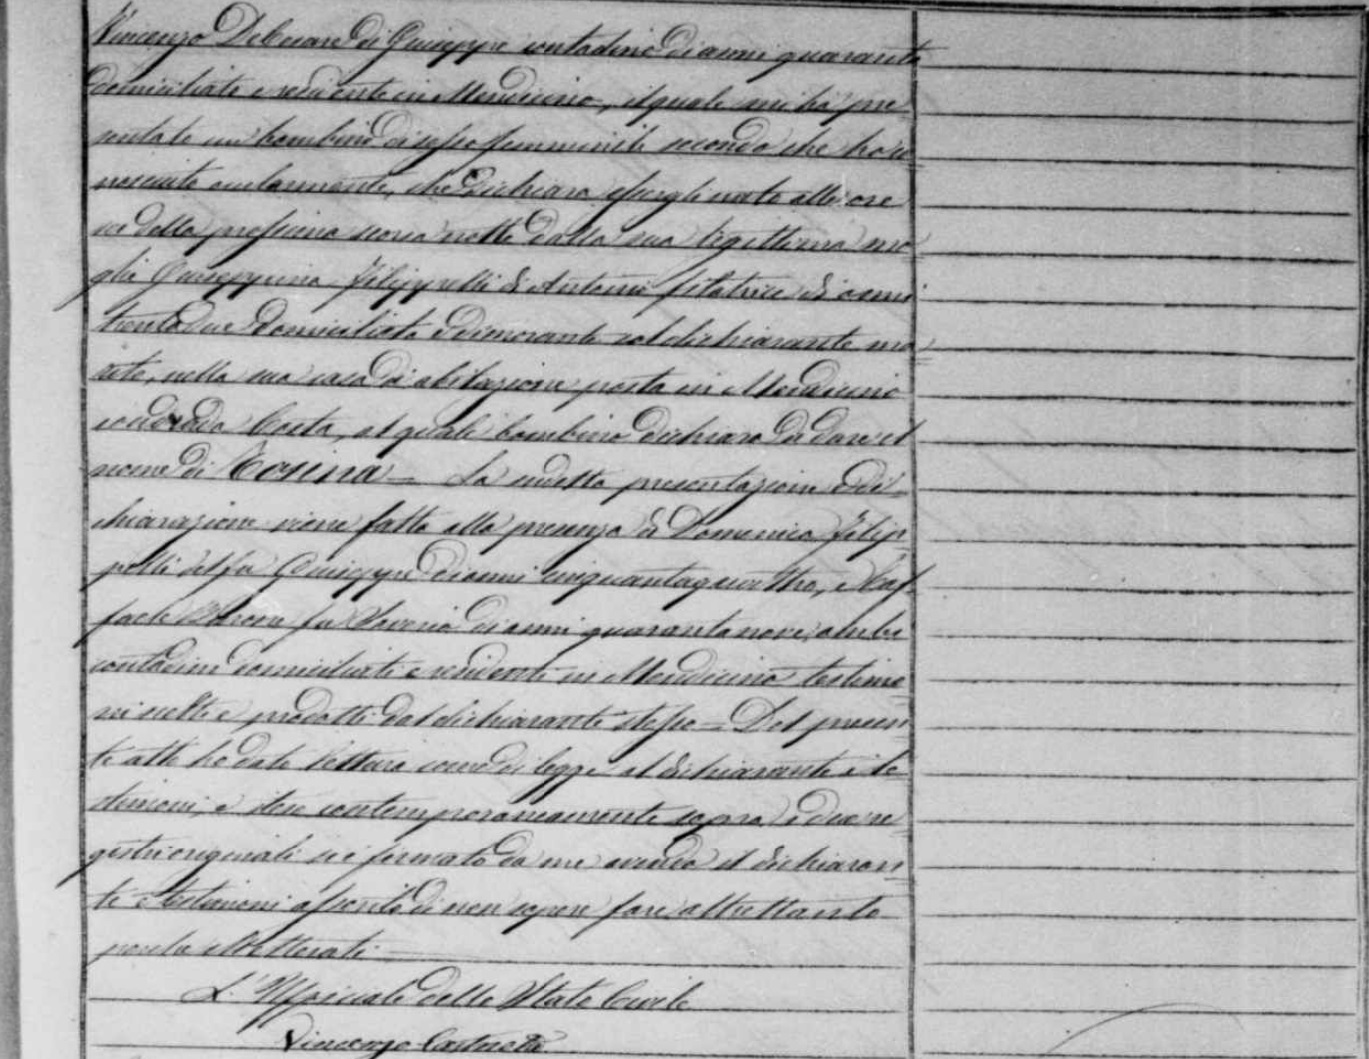 Vincenzo DeCesare di Giuseppe contadino di anni quaranta
domiciliato e residente in Mendicino, il quale mi ha pre
sentato un bambino di sesso femminile secondo che ho co
nosciuto ocularmente, che dichiara essergli nato alle ore
sei della prossima scorsa notte dalla sua legittima mo
glie Giuseppina Filippelli di Antonio filatrice di anni
trentadue domiciliata e dimorante col dichiarante ma
rito, nella sua casa di abitazione posta in Mendicino
contrada Costa, al quale bambino dichiara di dare il
nome di Rosina — La sudetta presentazione e di
chiarazione viene fatta alla presenza di Domenico Filip
pelli del fu Giuseppe di anni cinquantaquattro, e Raf
faele fu Saverio di anni quarantanove, ambi
contadini domiciliati e residenti in Mendicino testimo
ni scelti e prodotti dal dichiarante stesso — Del presen
te atto ho dato lettura come di legge al dichiarante e te
stimoni, e steso contemporaneamente sopra i due re
gistri originali si è firmato da me avendo il dichiaran
te e testimoni asserito di non sapere fare altrettanto
perché illetterati —
L'Uffiziale dello Stato Civile
Vincenzo